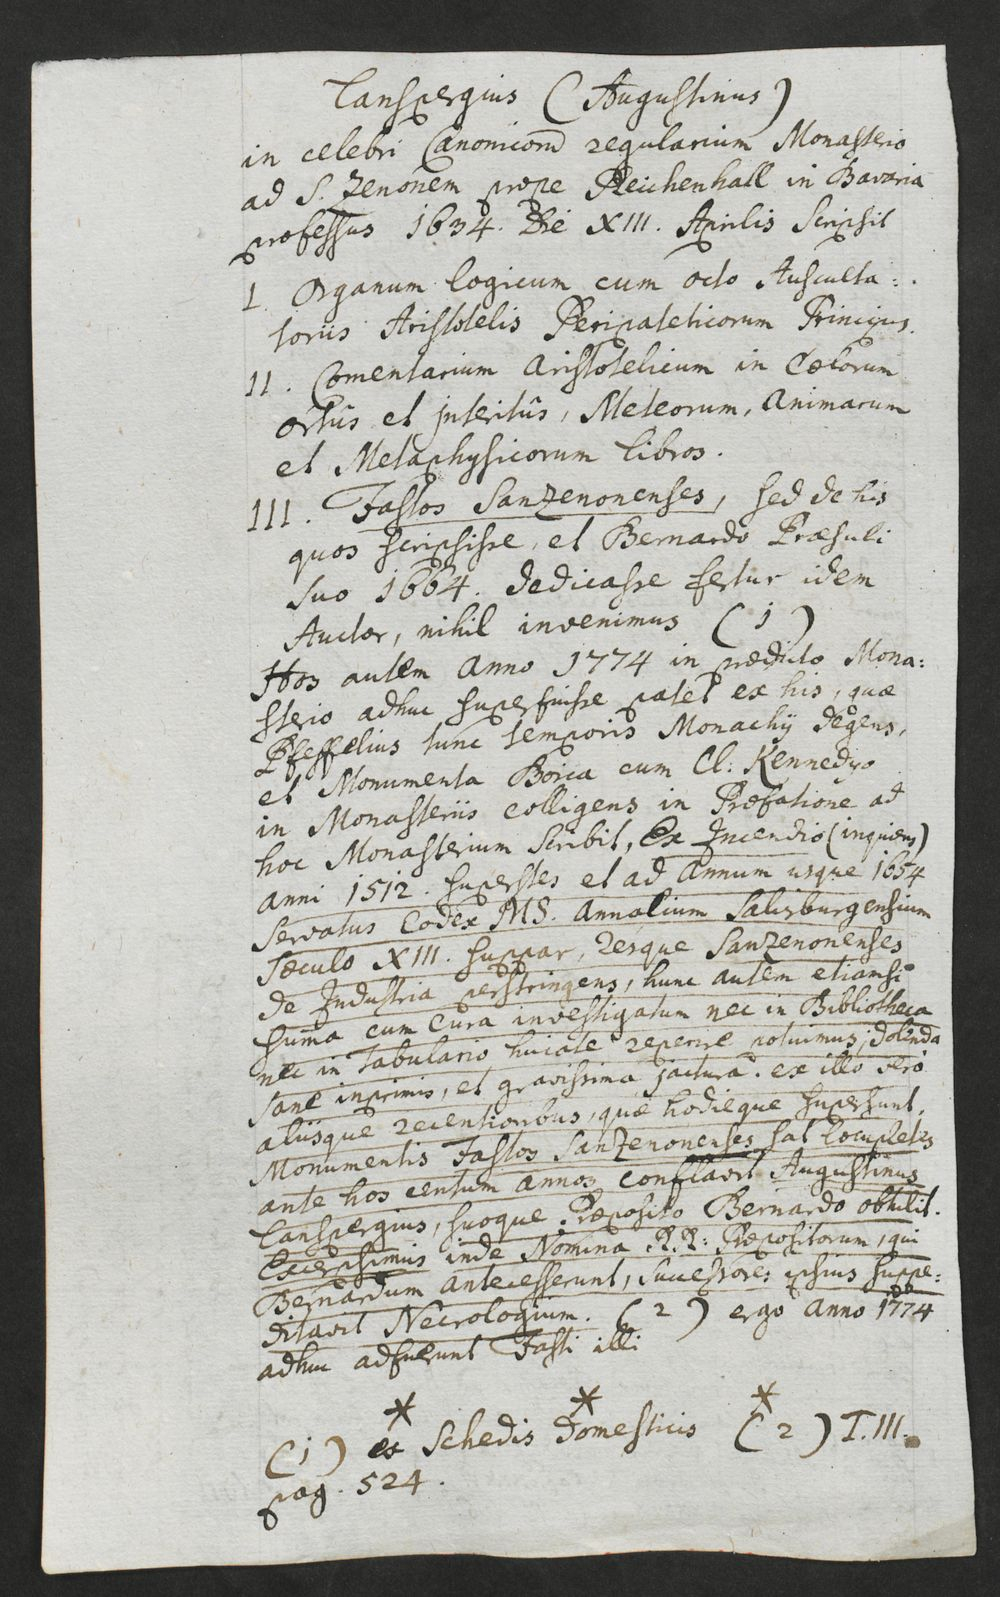 Lanspergius (Augustinus)
in celebri Canonicorũ regularium Monasterio
ad S. Zenonem prope Reichenhall in Bavaria
professus 1634. Die XIII. Aprilis Scripsit
I. Organum Logicum cum octo Ausculta:
toriis Aristotelis Peripateticorum Principis.
II. Comentarium Aristotelicum in Cœlorum
ortûs et jnteritûs, Meteorum, Animarum
et Metaphysicorum libros.
III. Fastos SanZenonenses, sed de his
quos scripsisse, et Bernardo Præsuli
suo 1664. dedicasse fertur idem
Auctor, nihil invenimus (1)
Hos autem Anno 1774 in prædicto Mona:
sterio adhuc superfuisse patet ex his, quæ
Pfeffelius tunc temporis Monachij degens,
et Monumenta Boica cum Cl: Kennedyo
in Monasteriis colligens in Præfatione ad
hoc Monasterium Scribit, Ex Incendio (inquiens)
anni 1512. superstes et ad annum usque 1654
servatus Codex MS. Annalium Salisburgensium
Sæculo XIII. suppar, resque SanZenonenses
de Industria perstringens, hunc autem etiamsi
suma cum cura investigatum nec in Bibliotheca
nec in Tabulario huiate reperire potuimus; dolenda
sane inprimis, et gravissima jactura. ex illo vero
aliisque recentioribus, quæ hodieque supersunt,
Monumentis Fastos SanZenonenses sat locupletes
ante hos centum annos conflavit Augustinus
Lanspergius, suoque Præposito Bernardo obtulit.
Excerpsimus inde Nomina R.R: Præpositorum, qui
Bernardum antecesserunt, Successores ipsius suppe:
ditavit Necrologium. (2) ergo anno 1774
adhuc adfuerunt Fasti illi
* * *
(1) ex Schedis Domesticis (2) T.III.
pag. 524.